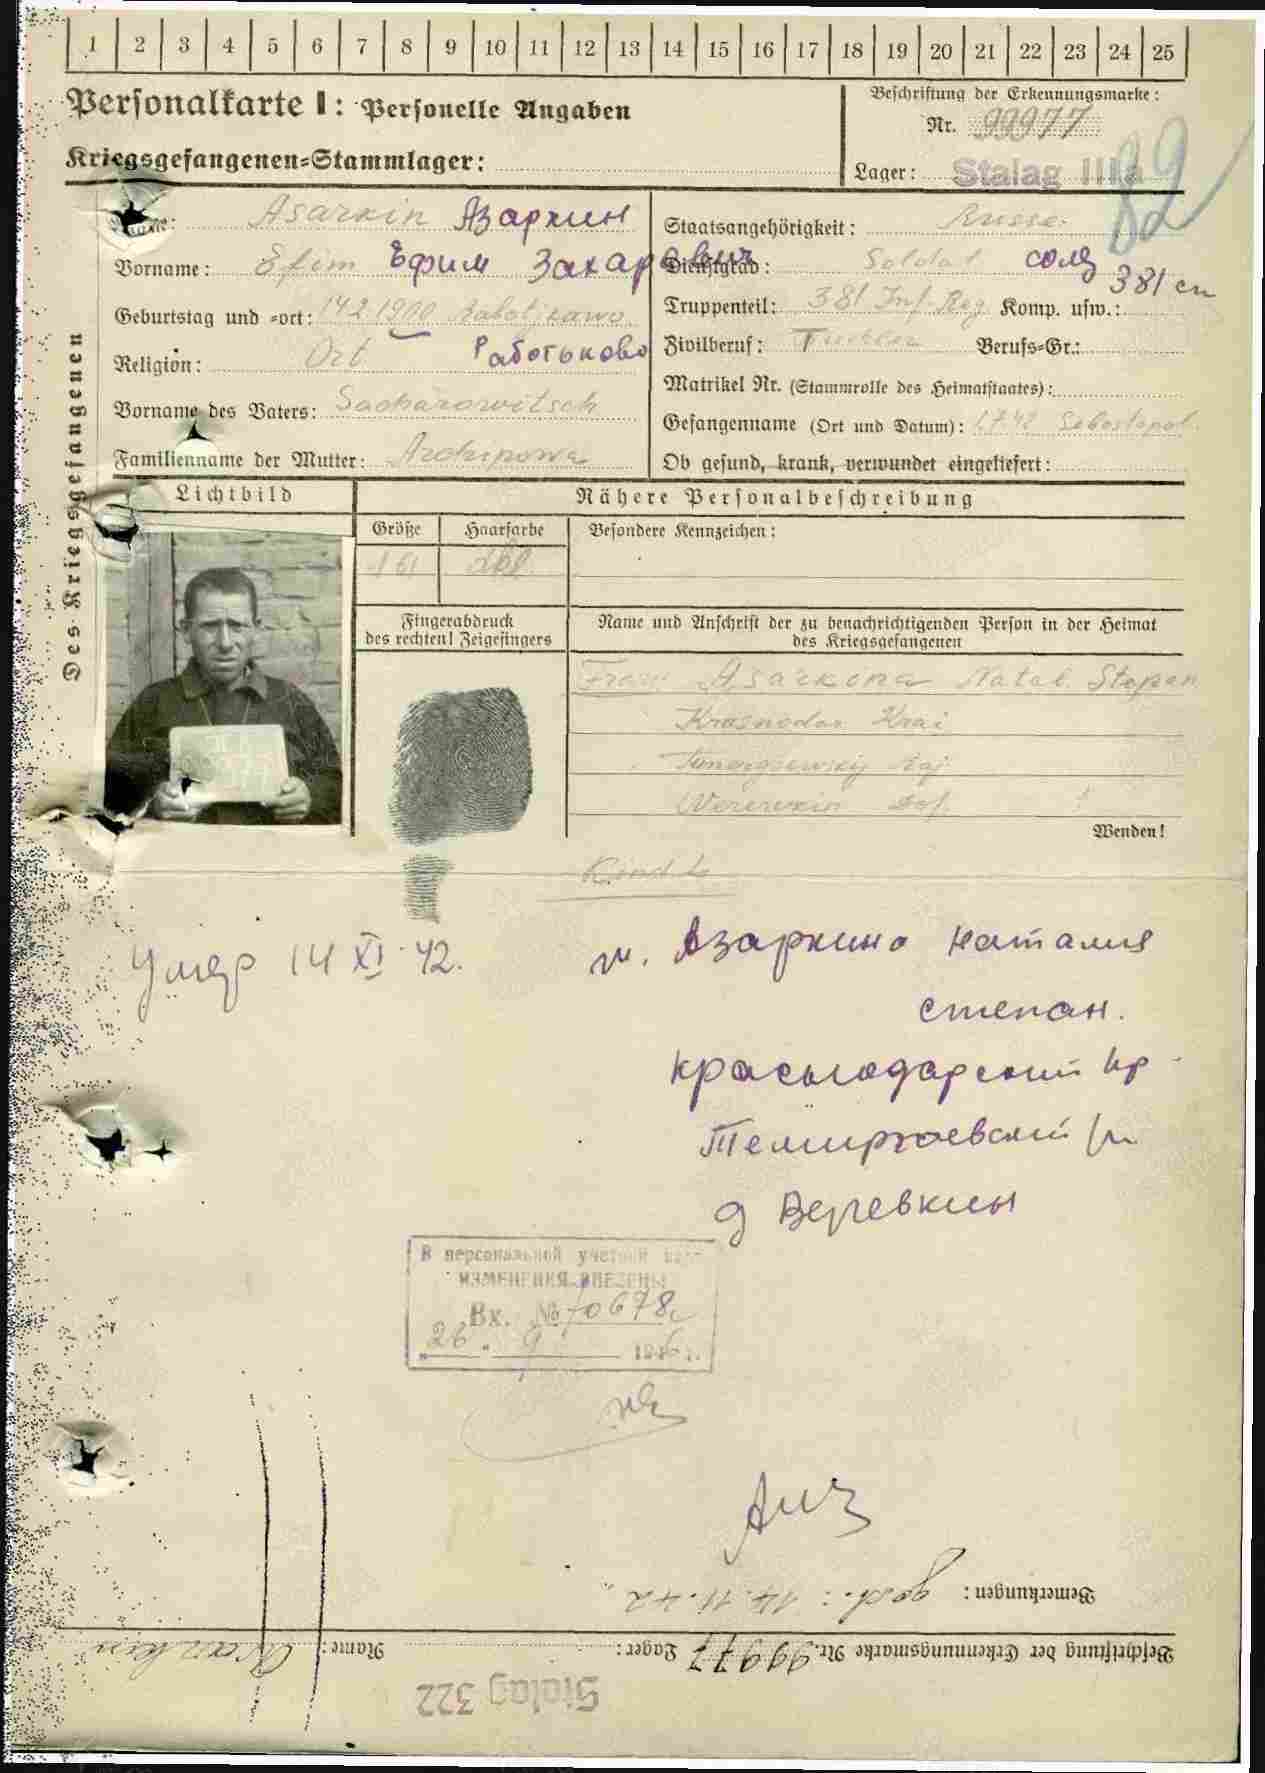 1 2 3 4 5 6 7 8 9 10 11 12 13 14 15 16 17 18 19 20 21 22 23 24 25
Personalkarte I: Personelle Angaben
Kriegsgefangenen=Stammlager:
Beschriftung der Erkennungsmarke:
Nr. 99977
Lager: Stalag IIIa
82
Des Kriegsgefangenen
Name: Asarkin Азаркин
Vorname: Efim Ефим Захарович
Geburtstag und =ort: 14.2.1900
Religion: Ort Работьково
Vorname des Vaters: Sacharowitsch
Familienname der Mutter: Archipowa
Staatsangehörigkeit: Russe
Dienstgrad: Soldat солд
381 сп
Truppenteil: 381 Inf. Reg. Komp. usw.:
Zivilberuf: Berufs=Gr.:
Matrikel Nr. (Stammrolle des Heimatstaates):
Gefangenname (Ort und Datum): 1.7.42 Sebastopol
Ob gesund, krank, verwundet eingeliefert:
Lichtbild
Nähere Personalbeschreibung
Größe Haarfarbe Besondere Kennzeichen:
161 dkl
Fingerabdruck
des rechten! Zeigefingers
Name und Anschrift der zu benachrichtigenden Person in der Heimat
des Kriegsgefangenen
Frau Asarkona Natal. Stepan
Krasnodar Krai
Raj
Werewkin Dof.
Wenden!
Kind. L
Умер 14 XI 42.
ж. Азаркина Наталия
степан.
Краснодарский кр
Темиргоевский р/н
д Веревкин
В персональной учетной
ИЗМЕНЕНИЯ ВНЕСЕНЫ
Вх. № 70678с
"26" 9 1946 г.
Bemerkungen: gest.: 14.11.42
Beschriftung der Erkennungsmarke Nr. 99977 Lager: Name: Asarkin
Stalag 322